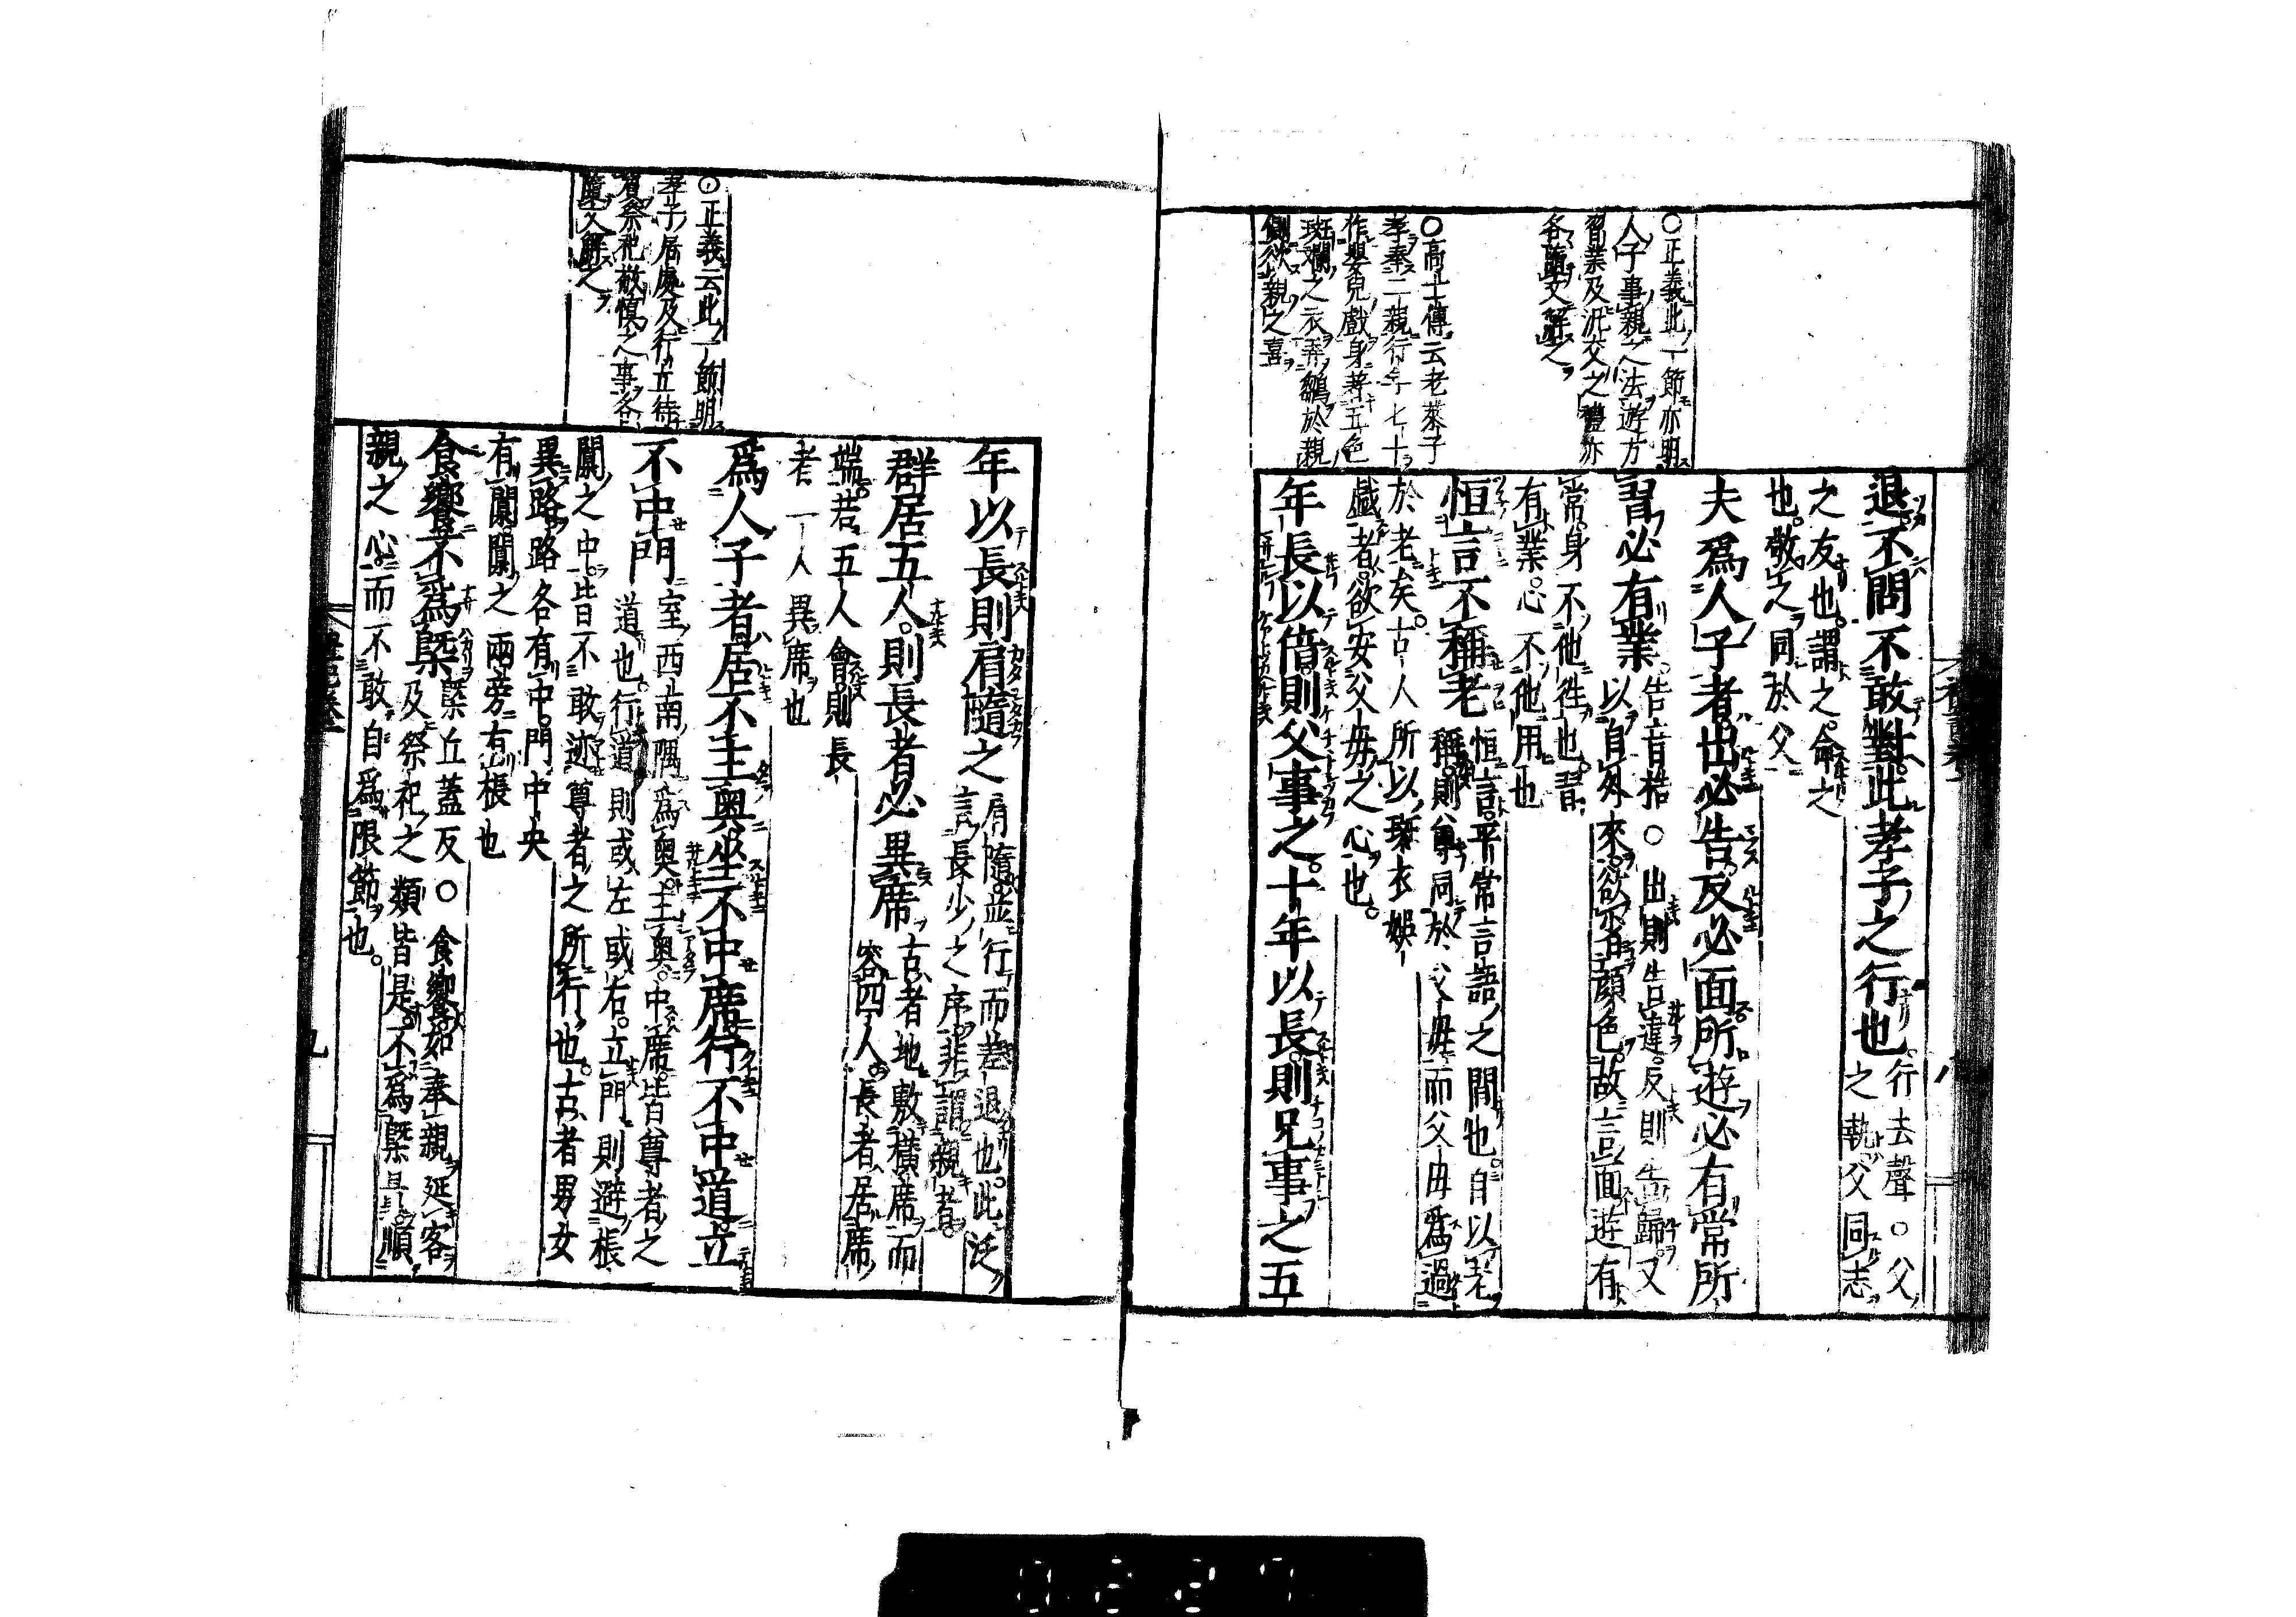 ○正義此一節亦明
人子事親之法遊方
習業及泝交之禮亦
各隨文解之
○高士傳云老萊子
孝奉二親行年七十
作嬰兒戲身著五色
斑斕之衣弄雛於親
側欲親之喜
退不問不敢對此孝子之行也 行去聲○父
之執父同志
之友也謂之命之
也敬之同於父
夫爲人子者出必告反必面所遊必有常所
習必有業 告音梏○出則告違反則告歸又
以自外來欲省顏色故言面遊有
常身不他徃也習
有業心不他用也
恒言不稱老 恒言平常言語之間也自以老
稱則尊同於父母而父母爲過
於老矣古人所以斑衣娛
戲者欲安父母之心也
年長以倍則父事之十年以長則兄事之五
八
○正義云此一節明
孝子居處及行立待
賓祭祀敬慎之事各
隨文解之
年以長則肩隨之 肩隨並行而差退也此泛
言長少之序非謂親者
群居五人則長者必異席 古者地敷横席而
容四人長者居席
端若五人會則長
者一人異席也
爲人子者居不主奧坐不中席行不中道立
不中門 室西南隅爲奧主奧中席皆尊者之
道也行道則或左或右立門則避棖
闑之中皆不敢迹尊者之所行也古者男女
異路路各有中門中央
有闑闑之兩旁有棖也
食饗不爲槩 槩丘蓋反○食饗如奉親延客
及祭祀之類皆是不爲槩且順
親之心而不敢自爲限節也
九